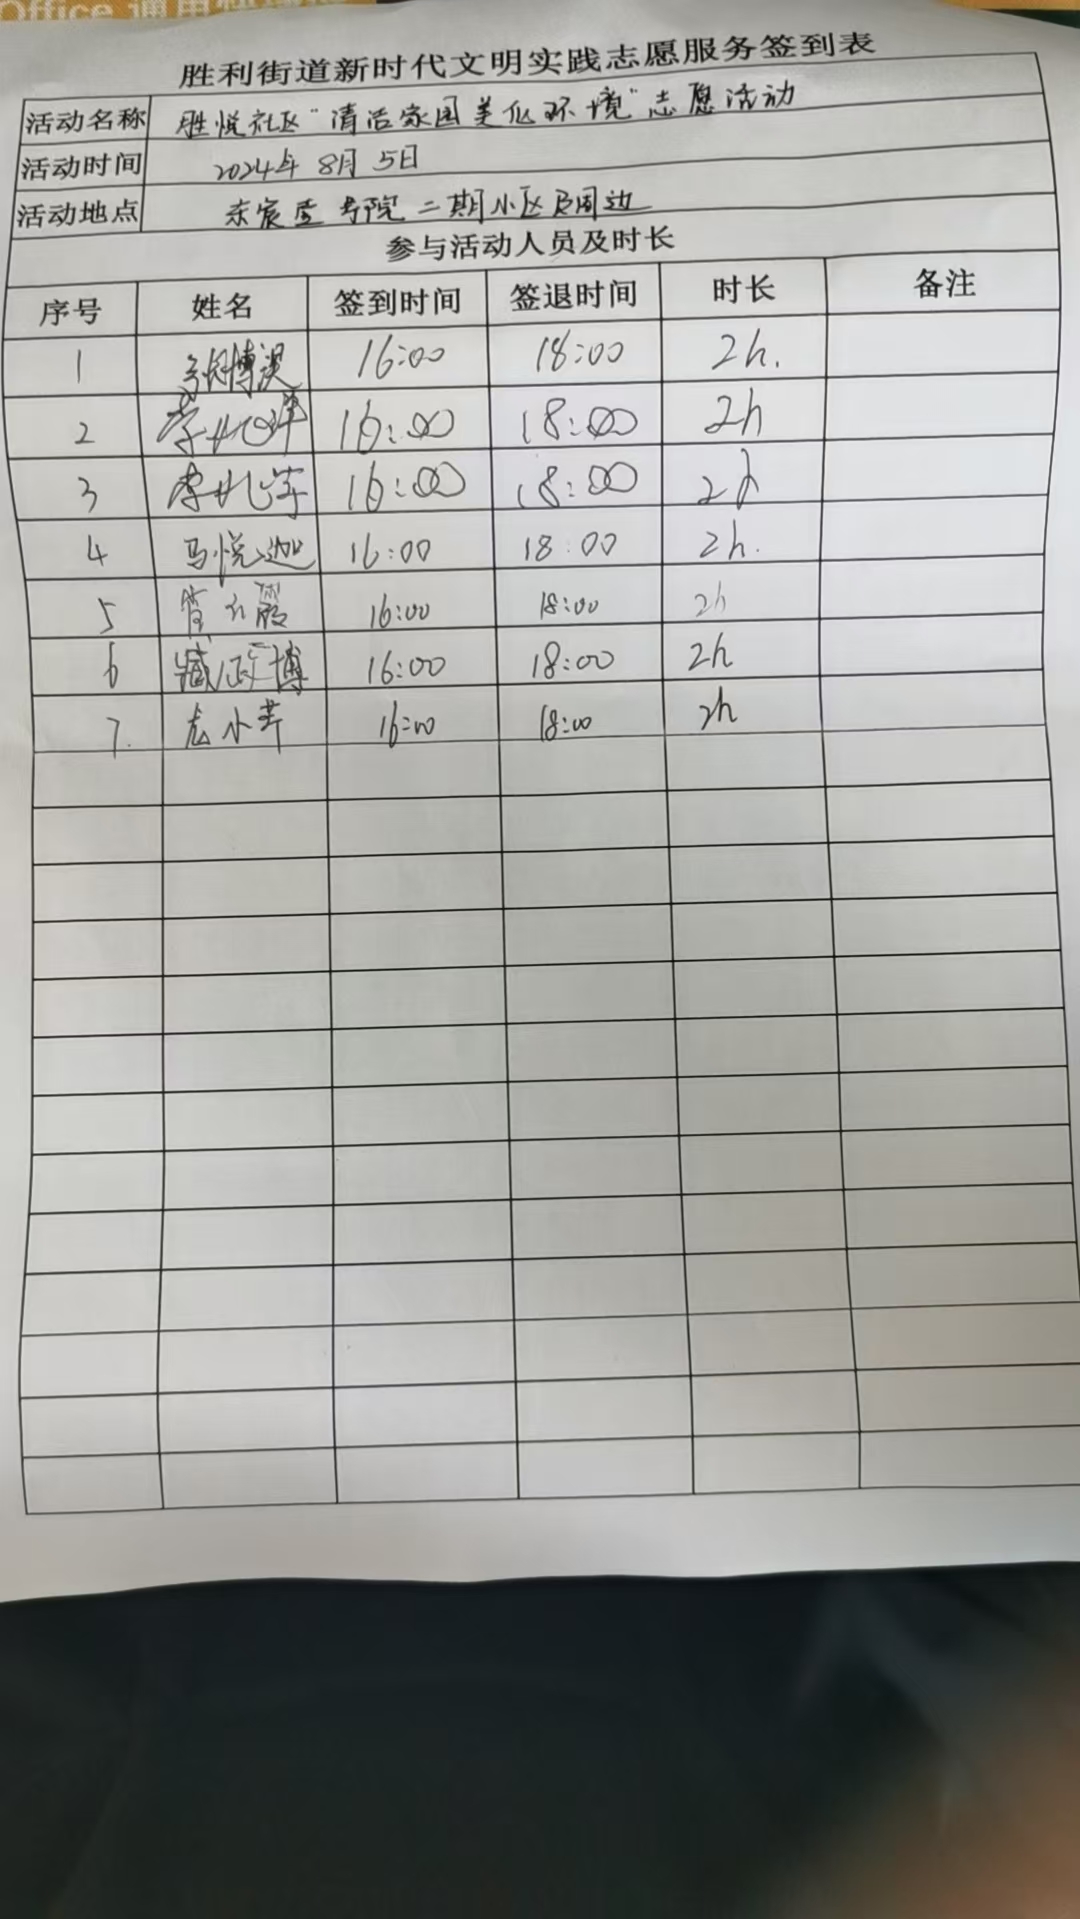 Office 通用
胜利街道新时代文明实践志愿服务签到表
活动名称 胜悦社区"清洁家园美化环境"志愿活动
活动时间 2024年 8月 5日
活动地点 东宸壹号院二期小区及周边
参与活动人员及时长
序号 姓名 签到时间 签退时间 时长 备注
1 16:00 18:00 2h.
2 16:00 18:00 2h
3 16:00 18:00 2h
4 马悦迦 16:00 18:00 2h.
5 16:00 18:00 2h
6 臧政博 16:00 18:00 2h
7. 16:00 18:00 2h